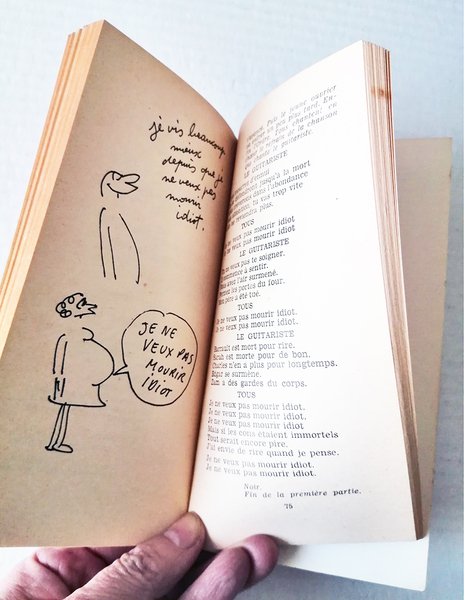 je vis beaucoup
mieux
depuis que je
ne veux pas
mourir
idiot.
JE NE
VEUX PAS
MOURIR
IDIOT
la chanson
guitariste.
LE GUITARISTE
jusqu'à la mort
l'abondance
tu vas trop vite
plus.
TOUS
ne veux pas mourir idiot
ne veux pas mourir idiot
LE GUITARISTE
veux pas te soigner.
commencé à sentir.
avec l'air surmené.
les portes du four.
père a été tué.
TOUS
ne veux pas mourir idiot.
ne veux pas mourir idiot.
LE GUITARISTE
est mort pour rire.
est morte pour de bon.
Charles n'en a plus pour longtemps.
Edgar se surmène.
Zum a des gardes du corps.
TOUS
Je ne veux pas mourir idiot.
Je ne veux pas mourir idiot,
Je ne veux pas mourir idiot
Mais si les cons étaient immortels
Tout serait encore pire.
J'ai envie de rire quand je pense.
Je ne veux pas mourir idiot.
Je ne veux pas mourir idiot.
Noir.
Fin de la première partie.
75